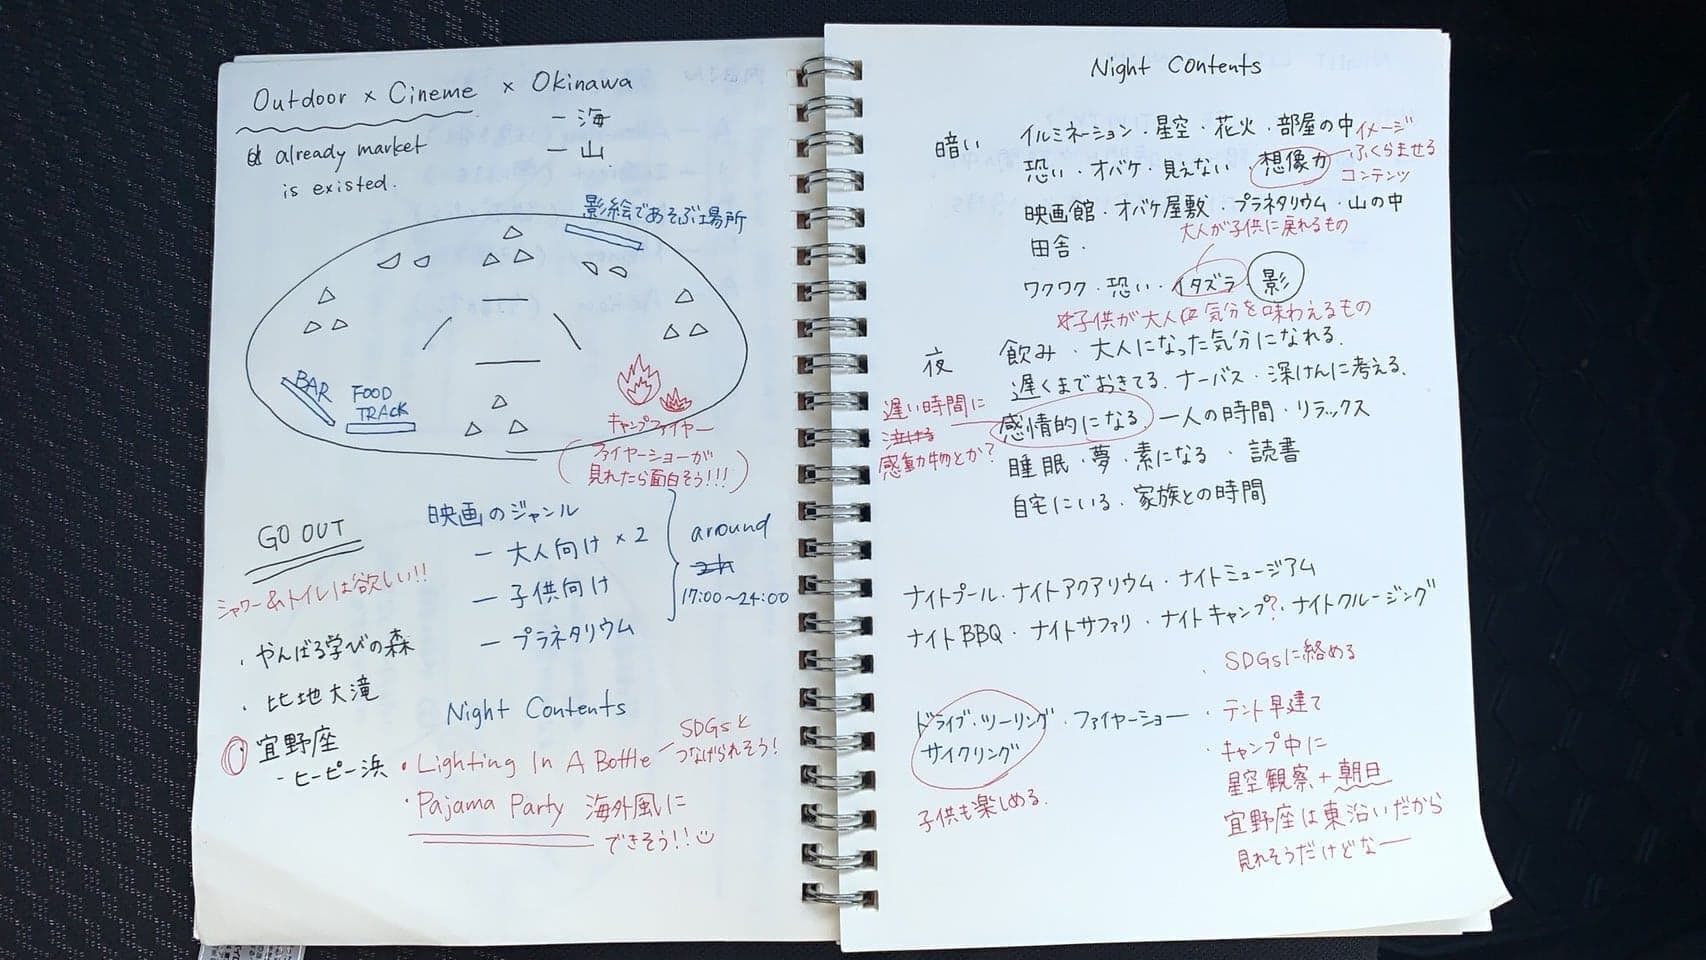 Outdoor × Cineme × Okinawa
- 海
- 山
already market
is existed.
影絵であそぶ場所
BAR
FOOD
TRACK
キャンプファイヤー
(ファイヤーショーが
見れたら面白そう!!!)
GO OUT
シャワー&トイレは欲しい!!
・やんばる学びの森
・比地大滝
宜野座
- ヒーピー浜
映画のジャンル
- 大人向け × 2
- 子供向け
- プラネタリウム
around
17:00~24:00
Night Contents
・Lighting In A Bottle
SDGsと
つなげられそう!
・Pajama Party 海外風に
できそう!!
Night Contents
暗い
イルミネーション・星空・花火・部屋の中
恐い・オバケ・見えない・想像力
イメージ
ふくらませる
コンテンツ
映画館・オバケ屋敷・プラネタリウム・山の中
田舎・
大人が子供に戻れるもの
ワクワク・恐い・イタズラ 影
子供が大人気分を味わえるもの
夜
飲み・大人になった気分になれる.
遅くまでおきてる.ナーバス・深けんに考える.
感情的になる.一人の時間・リラックス
遅い時間に
泣ける
感動物とか?
睡眠・夢・素になる・読書
自宅にいる.家族との時間
ナイトプール・ナイトアクアリウム・ナイトミュージアム
ナイトBBQ・ナイトサファリ・ナイトキャンプ?・ナイトクルージング
ドライブ・ツーリング・ファイヤーショー
サイクリング
子供も楽しめる.
・SDGsに絡める
・テント早建て
・キャンプ中に
星空観察+朝日
宜野座は東沿いだから
見れそうだけどなー